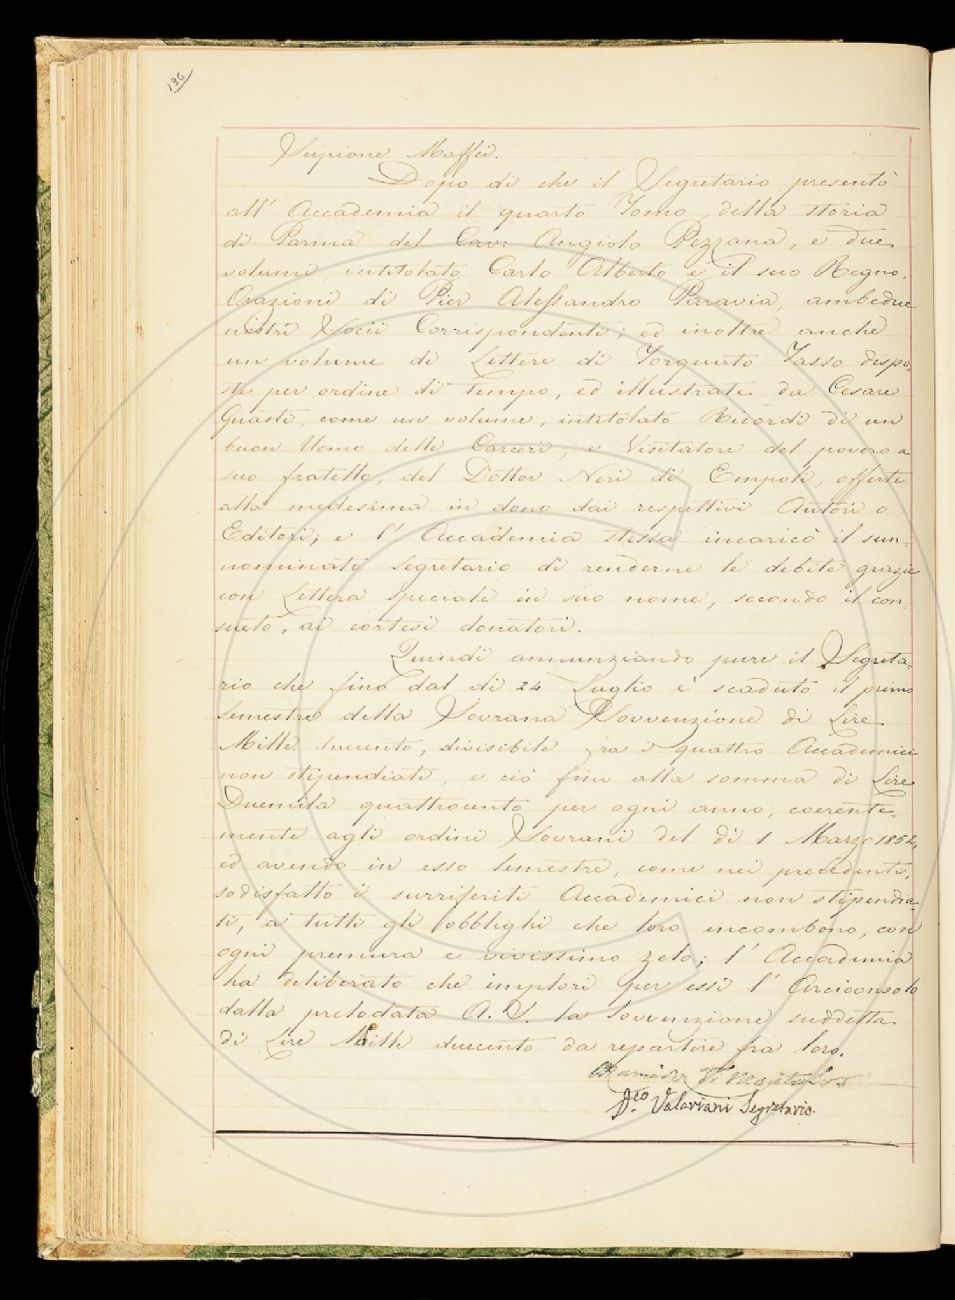 196
Scipione Maffei.
Dopo di che il Segretario presentò
all' Accademia il quarto Tomo della storia
di Parma del Cav: Angiolo Pezzana, e due
volumi intitolato Carlo Alberto e il suo Regno,
Orazioni di Pier Alessandro Paravia, ambedue
nostri Socii Corrispondenti; ed inoltre anche
un volume di Lettere di Torquato Tasso dispo-
ste per ordine di tempo, ed illustrate da Cesare
Guasti, come un volume, intitolato Ricordi di un
buon Uomo delle Carceri, e Visitatore del povero a
suo fratello, del Dottor Neri di Empoli, offerti
alla medesima in dono dai respettivi Autori o
Editori; e l' Accademia stessa incaricò il sun-
nominato Segretario di renderne le debite grazie
con Lettera speciale in suo nome, secondo il con-
sueto, ai cortesi donatori.
Quindi annunziando pure il Segreta-
rio che fino dal di 24 Luglio è scaduto il primo
Semestre della Sovrana Sovvenzione di Lire
Mille duecento, divisibile fra i quattro Accademici
non stipendiati, e ciò fino alla somma di Lire
Duemila quattrocento per ogni anno, coerente-
mente agli ordini Sovrani del dì 1 Marzo 1852,
ed avendo in esso Semestre, come nei precedenti,
sodisfatto i surriferiti Accademici non stipendia-
ti, a tutti gli obblighi che loro incombono, con
ogni premura e vivissimo zelo; l' Accademia
ha deliberato che implori per essi l' Arciconsolo
dalla prelodata A. S. la Sovvenzione suddetta
di Lire Mille duecento da repartire fra loro.
Valeriani Segretario.